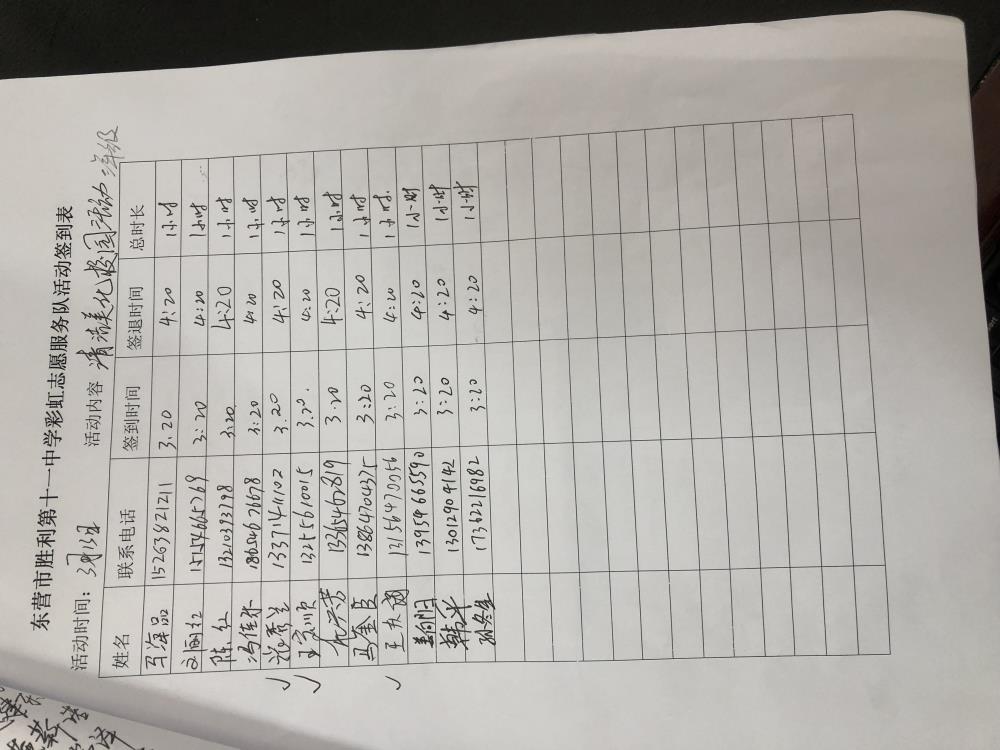 东营市胜利第十一中学彩虹志愿服务队活动签到表
活动时间：3月12日 活动内容 清洁美化校园活动 年级
姓名 联系电话 签到时间 签退时间 总时长
马海品 15263821211 3:20 4:20 1小时
刘丽红 15154665769 3:20 4:20 1小时
陈红 13210393798 3:20 4:20 1小时
冯佳 18654676678 3:20 4:20 1小时
13371411102 3:20 4:20 1小时
王 13255610015 3:20 4:20 1小时
13365462819 3:20 4:20 1小时
马奎 13864704375 3:20 4:20 1小时
王 13156470056 3:20 4:20 1小时
139546665590 3:20 4:20 1小时
韩 13012904142 3:20 4:20 1小时
17362216982 3:20 4:20 1小时